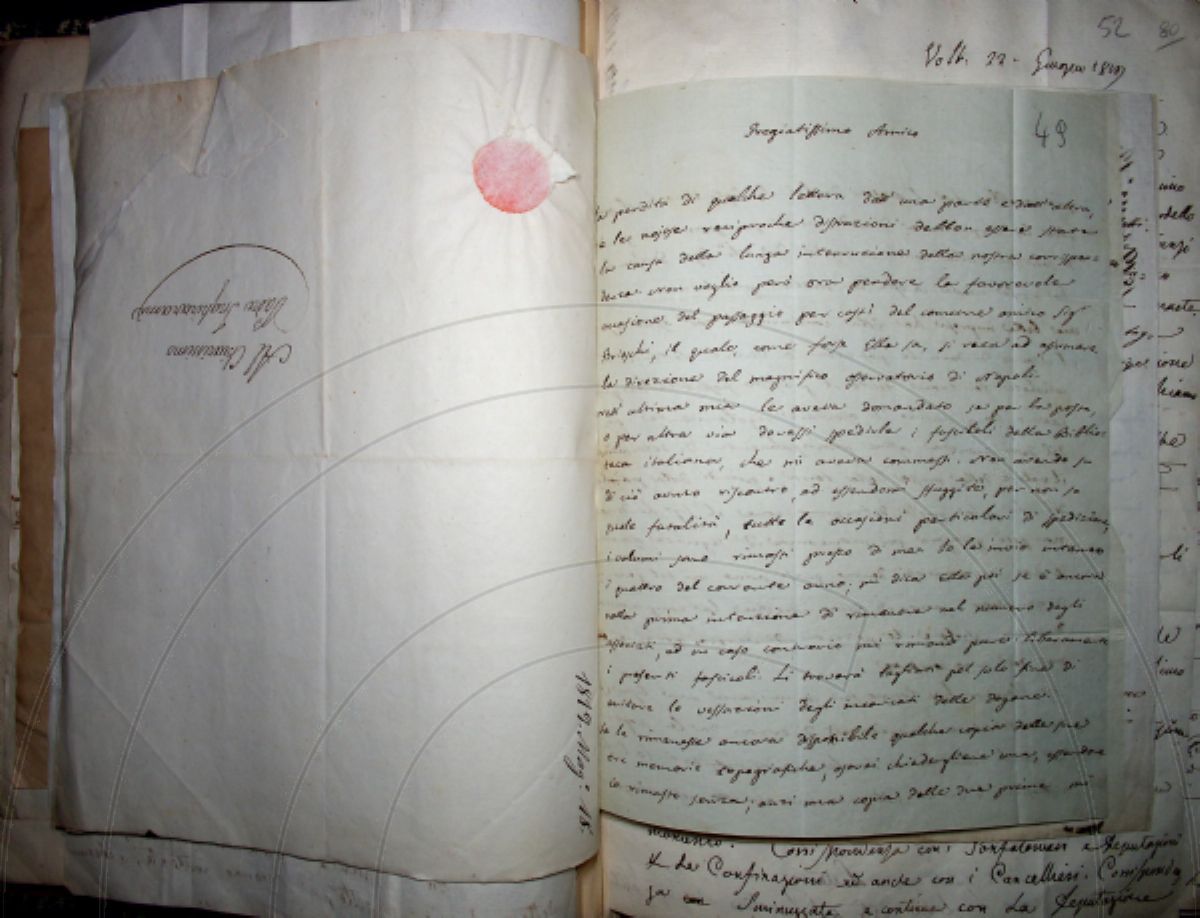 Al Chiarissimo
Padre Inghirami
1819. Mag.o 18.
52 80
Volt. 22 - Giugno 1819
49
Pregiatissimo Amico
La perdita di qualche lettera dall'una parte e dall'altra,
e le nostre reciproche distrazioni debbon essere state
la causa della lunga interruzione della nostra corrispon-
denza. Non voglio però ora perdere la favorevole
occasione del passaggio per costì del comune amico Sig.
Brioschi, il quale, come forse Ella sa, si reca ad assumere
la direzione del magnifico osservatorio di Napoli.
Nell' ultima mia le aveva domandato se per la posta,
o per altra via dovessi spedirle i fascicoli della Biblio-
teca italiana, che mi aveva commessi. Non avendo su
di ciò avuto riscontro, ed essendomi sfuggite, per non so
quale fatalità, tutte le occasioni particolari di spedizione,
i volumi sono rimasti presso di me. Io le invio intanto
i quattro del corrente anno; mi dica Ella poi se è ancora
nella prima intenzione di rimanere nel numero degli
associati, ed in caso contrario mi rimandi pure liberamente
i presenti fascicoli. Li troverà tagliati pel solo fine di
evitare le vessazioni degli incaricati delle dogane.
Se le rimanesse ancora disponibile qualche copia delle sue
tre memorie topografiche, oserei chiedergliene una, essendone
io rimasto senza; anzi una copia delle due prime mi
Corrispondenza con i Gonfalonieri e Deputazioni
e da Confinazioni ed anche con i Cancellieri. Corrisponden
za e continue con la Deputazione